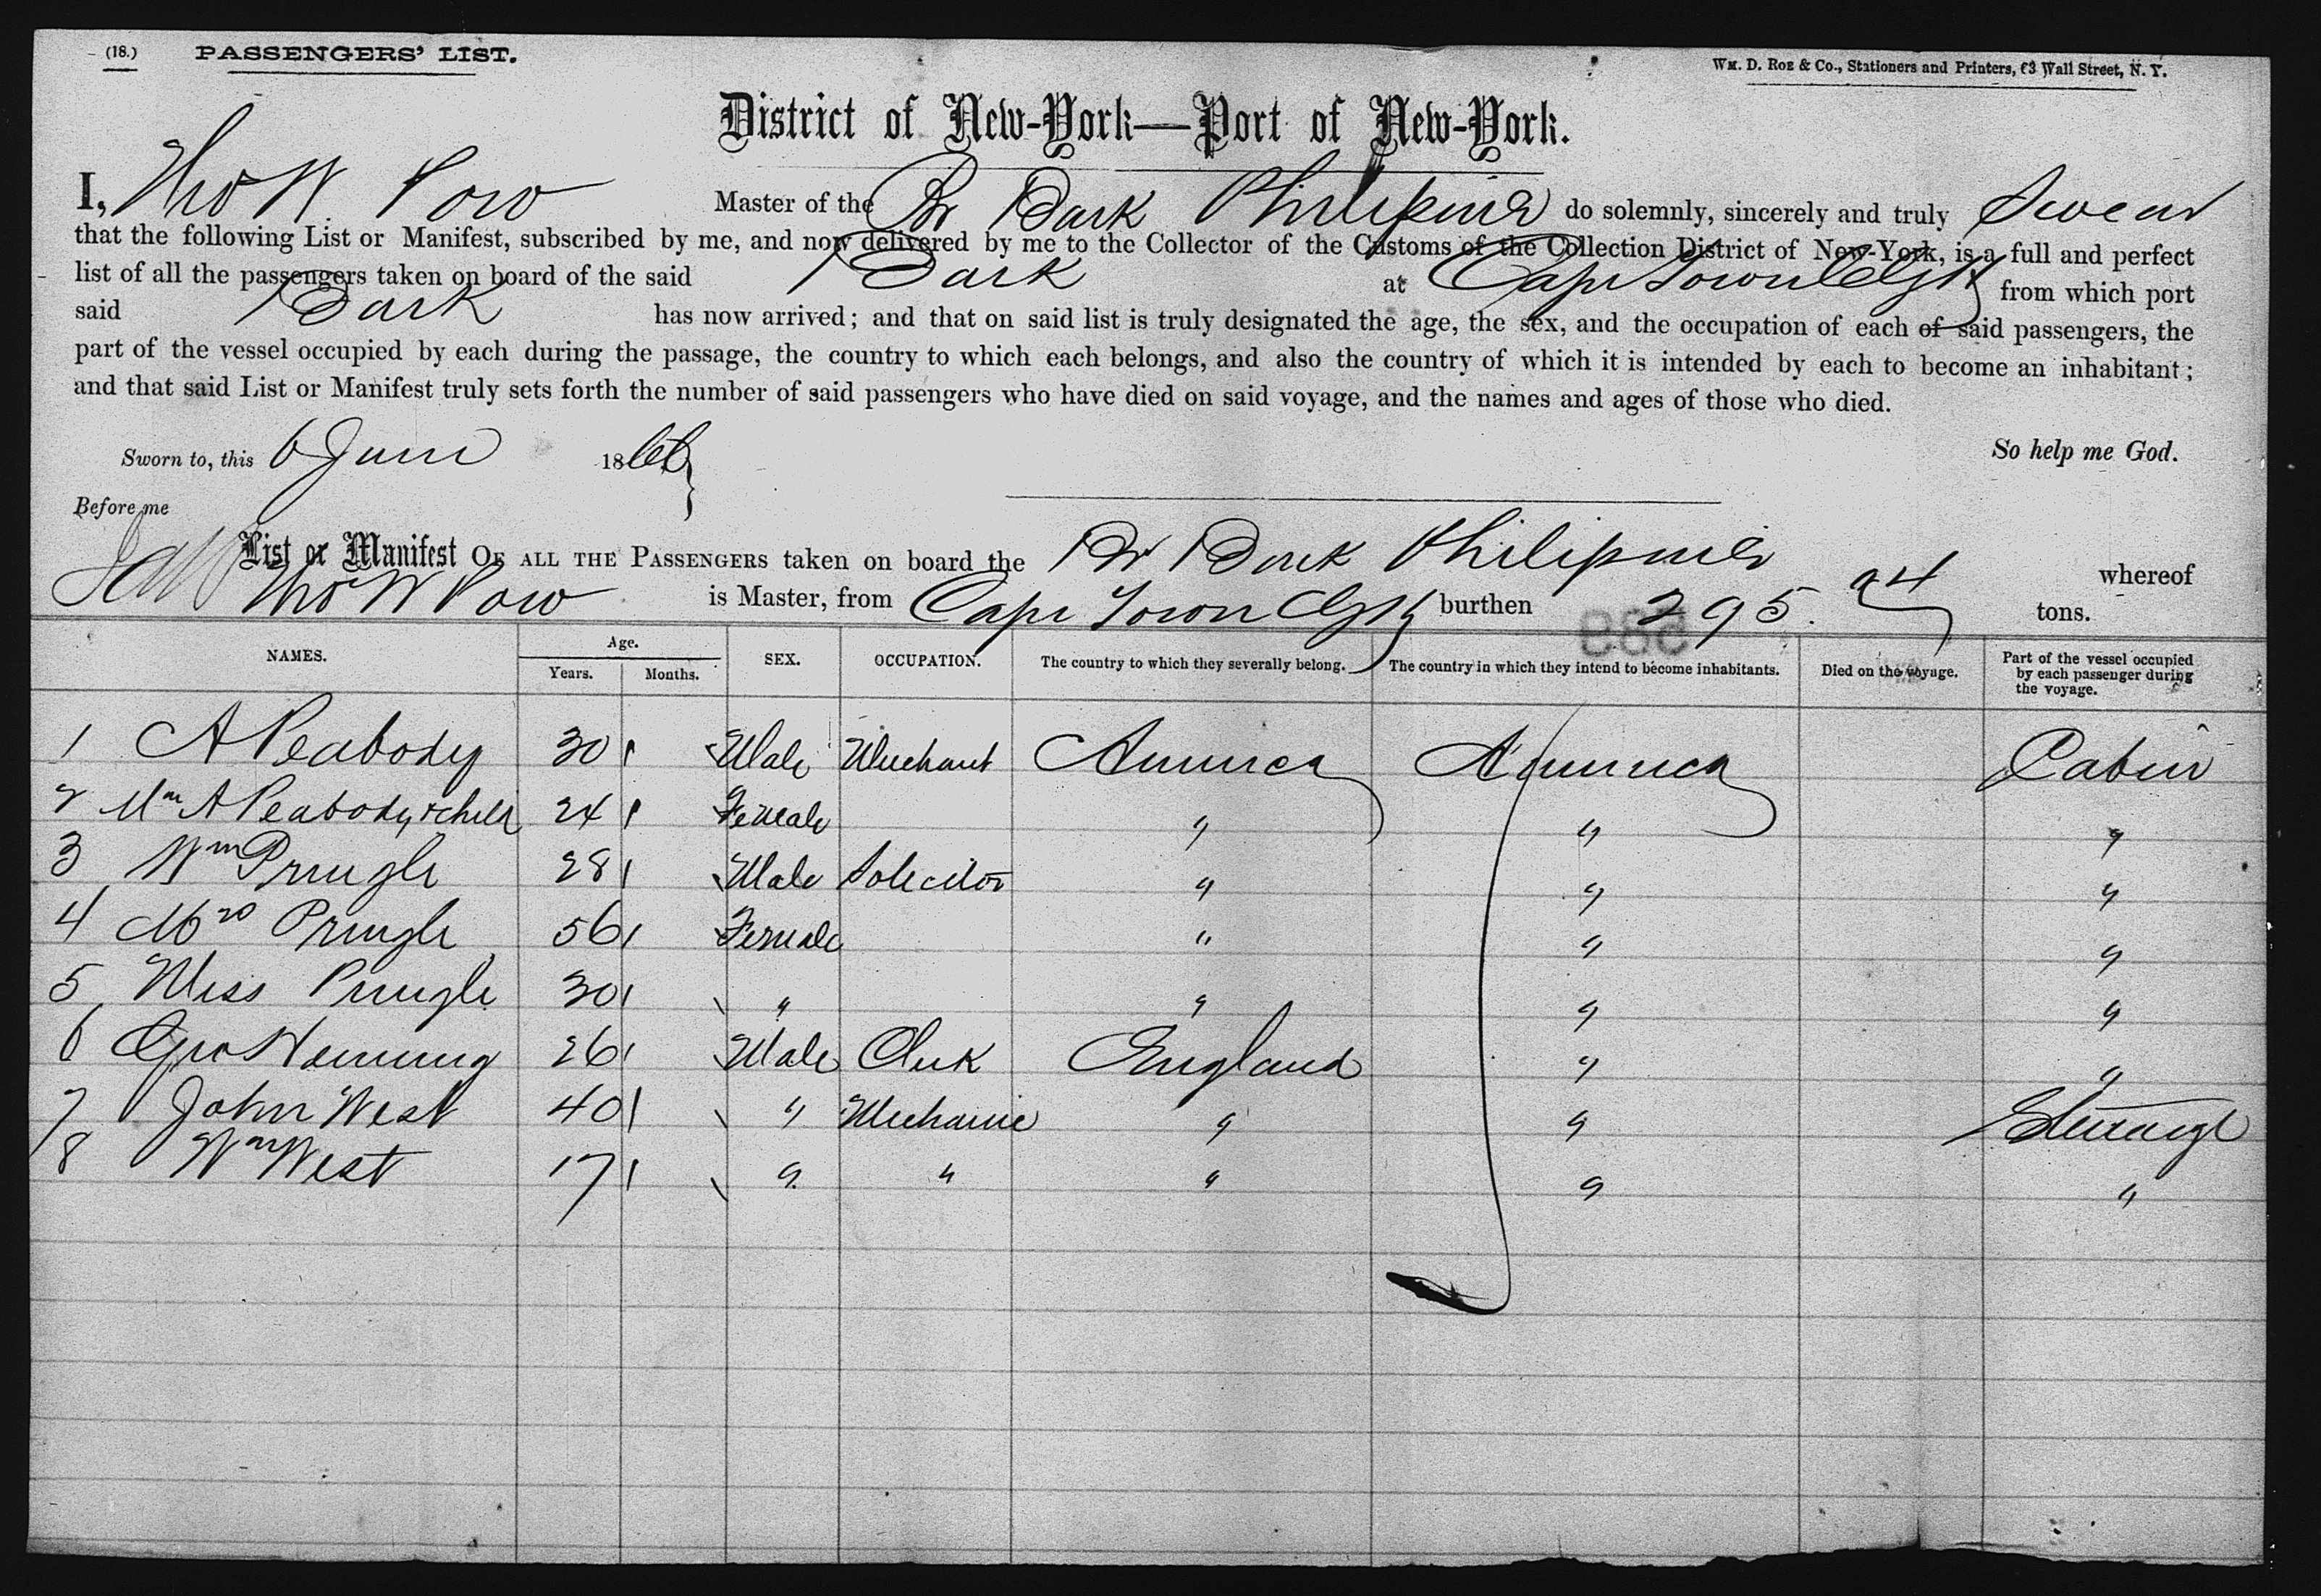 (18.) PASSENGERS' LIST. Wm. D. Roe & Co., Stationers and Printers, 63 Wall Street, N. Y.
District of New-York—Port of New-York.
I, Thos W Pow Master of the Br Bark Philipine do solemnly, sincerely and truly Swear
that the following List or Manifest, subscribed by me, and now delivered by me to the Collector of the Customs of the Collection District of New-York, is a full and perfect
list of all the passengers taken on board of the said Bark at Cape Town CGH from which port
said Bark has now arrived; and that on said list is truly designated the age, the sex, and the occupation of each of said passengers, the
part of the vessel occupied by each during the passage, the country to which each belongs, and also the country of which it is intended by each to become an inhabitant;
and that said List or Manifest truly sets forth the number of said passengers who have died on said voyage, and the names and ages of those who died.
Sworn to, this 6 June 1866 So help me God.
Before me
List or Manifest OF ALL THE PASSENGERS taken on board the Br Bark Philipine whereof
Thos W Pow is Master, from Cape Town CGH burthen 295. 94 tons.
NAMES. Age. Years. Months. SEX. OCCUPATION. The country to which they severally belong. The country in which they intend to become inhabitants. Died on the voyage. Part of the vessel occupied by each passenger during the voyage.
1 A Peabody 30 Male Merchant America America Cabin
2 Mrs A Peabody & child 24 Female " " "
3 Wm Pringle 28 Male Solicitor " " "
4 Mrs Pringle 56 Female " " "
5 Miss Pringle 30 " " " "
6 Geo Hemming 26 Male Clerk England " "
7 John West 40 " Mechanic " " Steerage
8 Wm West 17 " " " " "